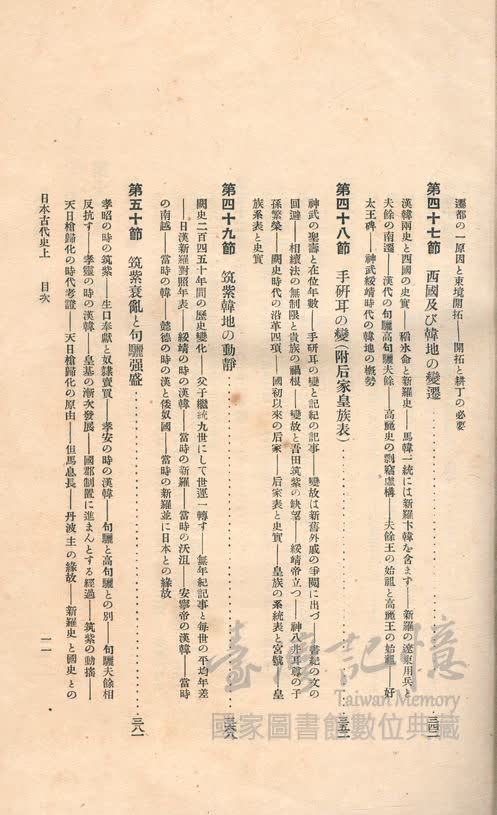 遷都の一原因と東境開拓――開拓と耕丁の必要
第四十七節 西國及び韓地の變遷……………………三四一
漢韓兩史と西國の史實――稻氷命と新羅史――馬韓一統には新羅卞韓を含まず――新羅の遼東用兵と
夫餘の南遷――漢代の句驪高句驪夫餘――高麗史の剽竊虛構――夫餘王の始祖と高麗王の始祖――好
太王碑――神武綏靖時代の韓地の概勢
第四十八節 手研耳の變(附后家皇族表)……………………三五二
神武の聖壽と在位年數――手研耳の變と記紀の記事――變故は新舊外戚の爭鬩に出づ――書紀の文の
回避――相續法の無制限と貴族の禍根――變故と吾田筑紫の缺望――綏靖帝立つ――神八井耳尊の子
孫繁榮――闕史時代の沿革四項――國初以來の后家――后家表と史實――皇族の系統表と宮號――皇
族系表と史實
第四十九節 筑紫韓地の動靜……………………三六八
闕史二百四五十年間の歷史變化――父子繼統九世にして世運一轉す――無年紀記事と每世の平均年差
――日漢新羅對照年表――綏靖の時の漢韓――當時の新羅――當時の沃沮――安寧帝の漢韓――當時
の南越――當時の韓――懿德の時の漢と倭奴國――當時の新羅並に日本との緣故
第五十節 筑紫衰亂と句驪强盛……………………三八一
孝昭の時の筑紫――生口奉獻と奴隷賣買――孝安の時の漢韓――句驪と高句驪との別――句驪夫餘相
反抗す――孝靈の時の漢韓――皇基の漸次發展――國郡制置に進まんとする經過――筑紫の動搖――
天日槍歸化の時代考證――天日槍歸化の原由――但馬息長――丹波主の緣故――新羅史と國史との
日本古代史上 目次
一一
臺灣記憶
Taiwan Memory
國家圖書館數位典藏